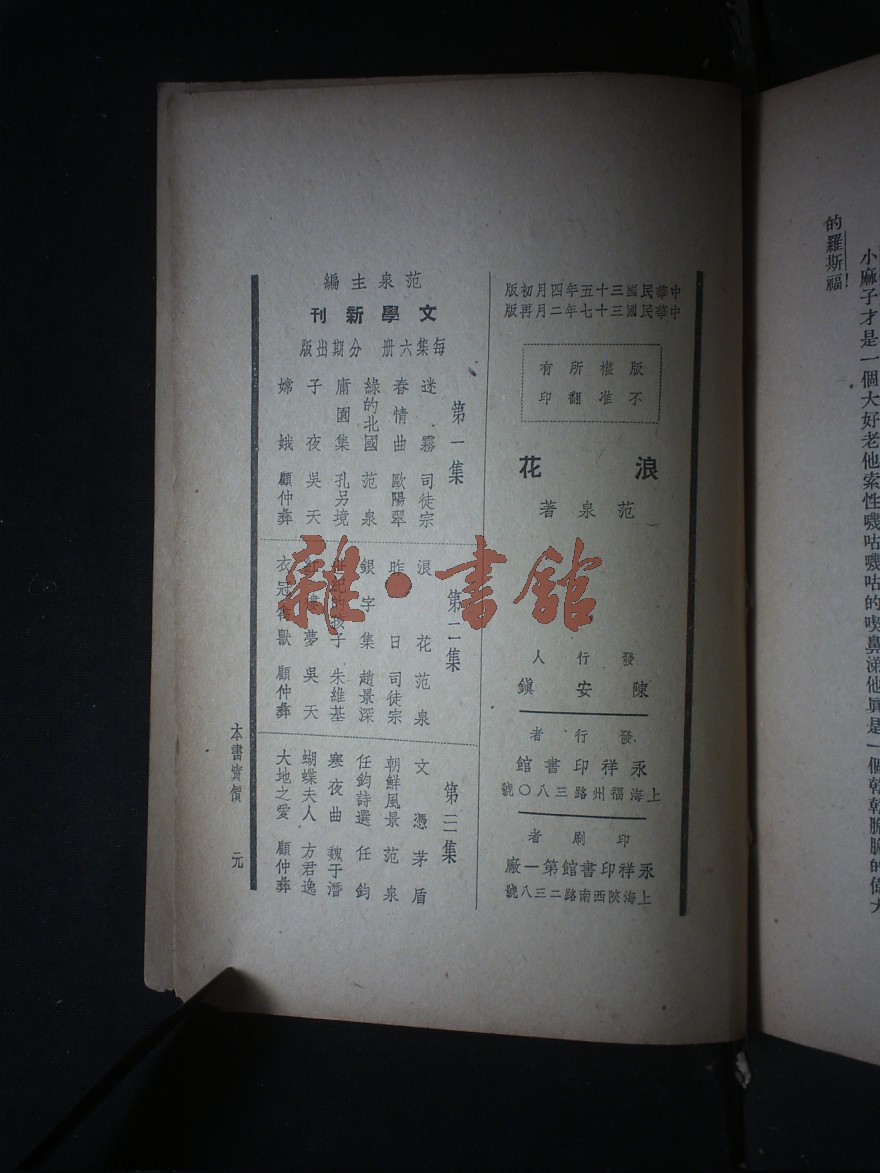 小麻子才是一個大好老他索性嘰咕嘰咕的喫鼻涕他眞是一個乾乾脆脆的偉大
的羅斯福！
中華民國三十五年四月初版
中華民國三十七年二月再版
版權所有
不准翻印
浪花
范泉著
發行人
陳安鎭
發行者
永祥印書館
上海福州路三八〇號
印刷者
永祥印書館第一廠
上海陝西南路二三八號
范泉主編
文學新刊
每集六册 分期出版
第一集
迷霧 司徒宗
春情曲 歐陽翠
綠的北國 范泉
庸園集 孔另境
子夜 吳天
嫦娥 顧仲彝
第二集
浪花 范泉
昨日 司徒宗
銀字集 趙景深
世紀的孩子 朱維基
紅樓夢 吳天
衣冠禽獸 顧仲彝
第三集
文憑 茅盾
朝鮮風景 范泉
任鈞詩選 任鈞
寒夜曲 魏于潛
蝴蝶夫人 方君逸
大地之愛 顧仲彝
本書實價 元
雜·書館